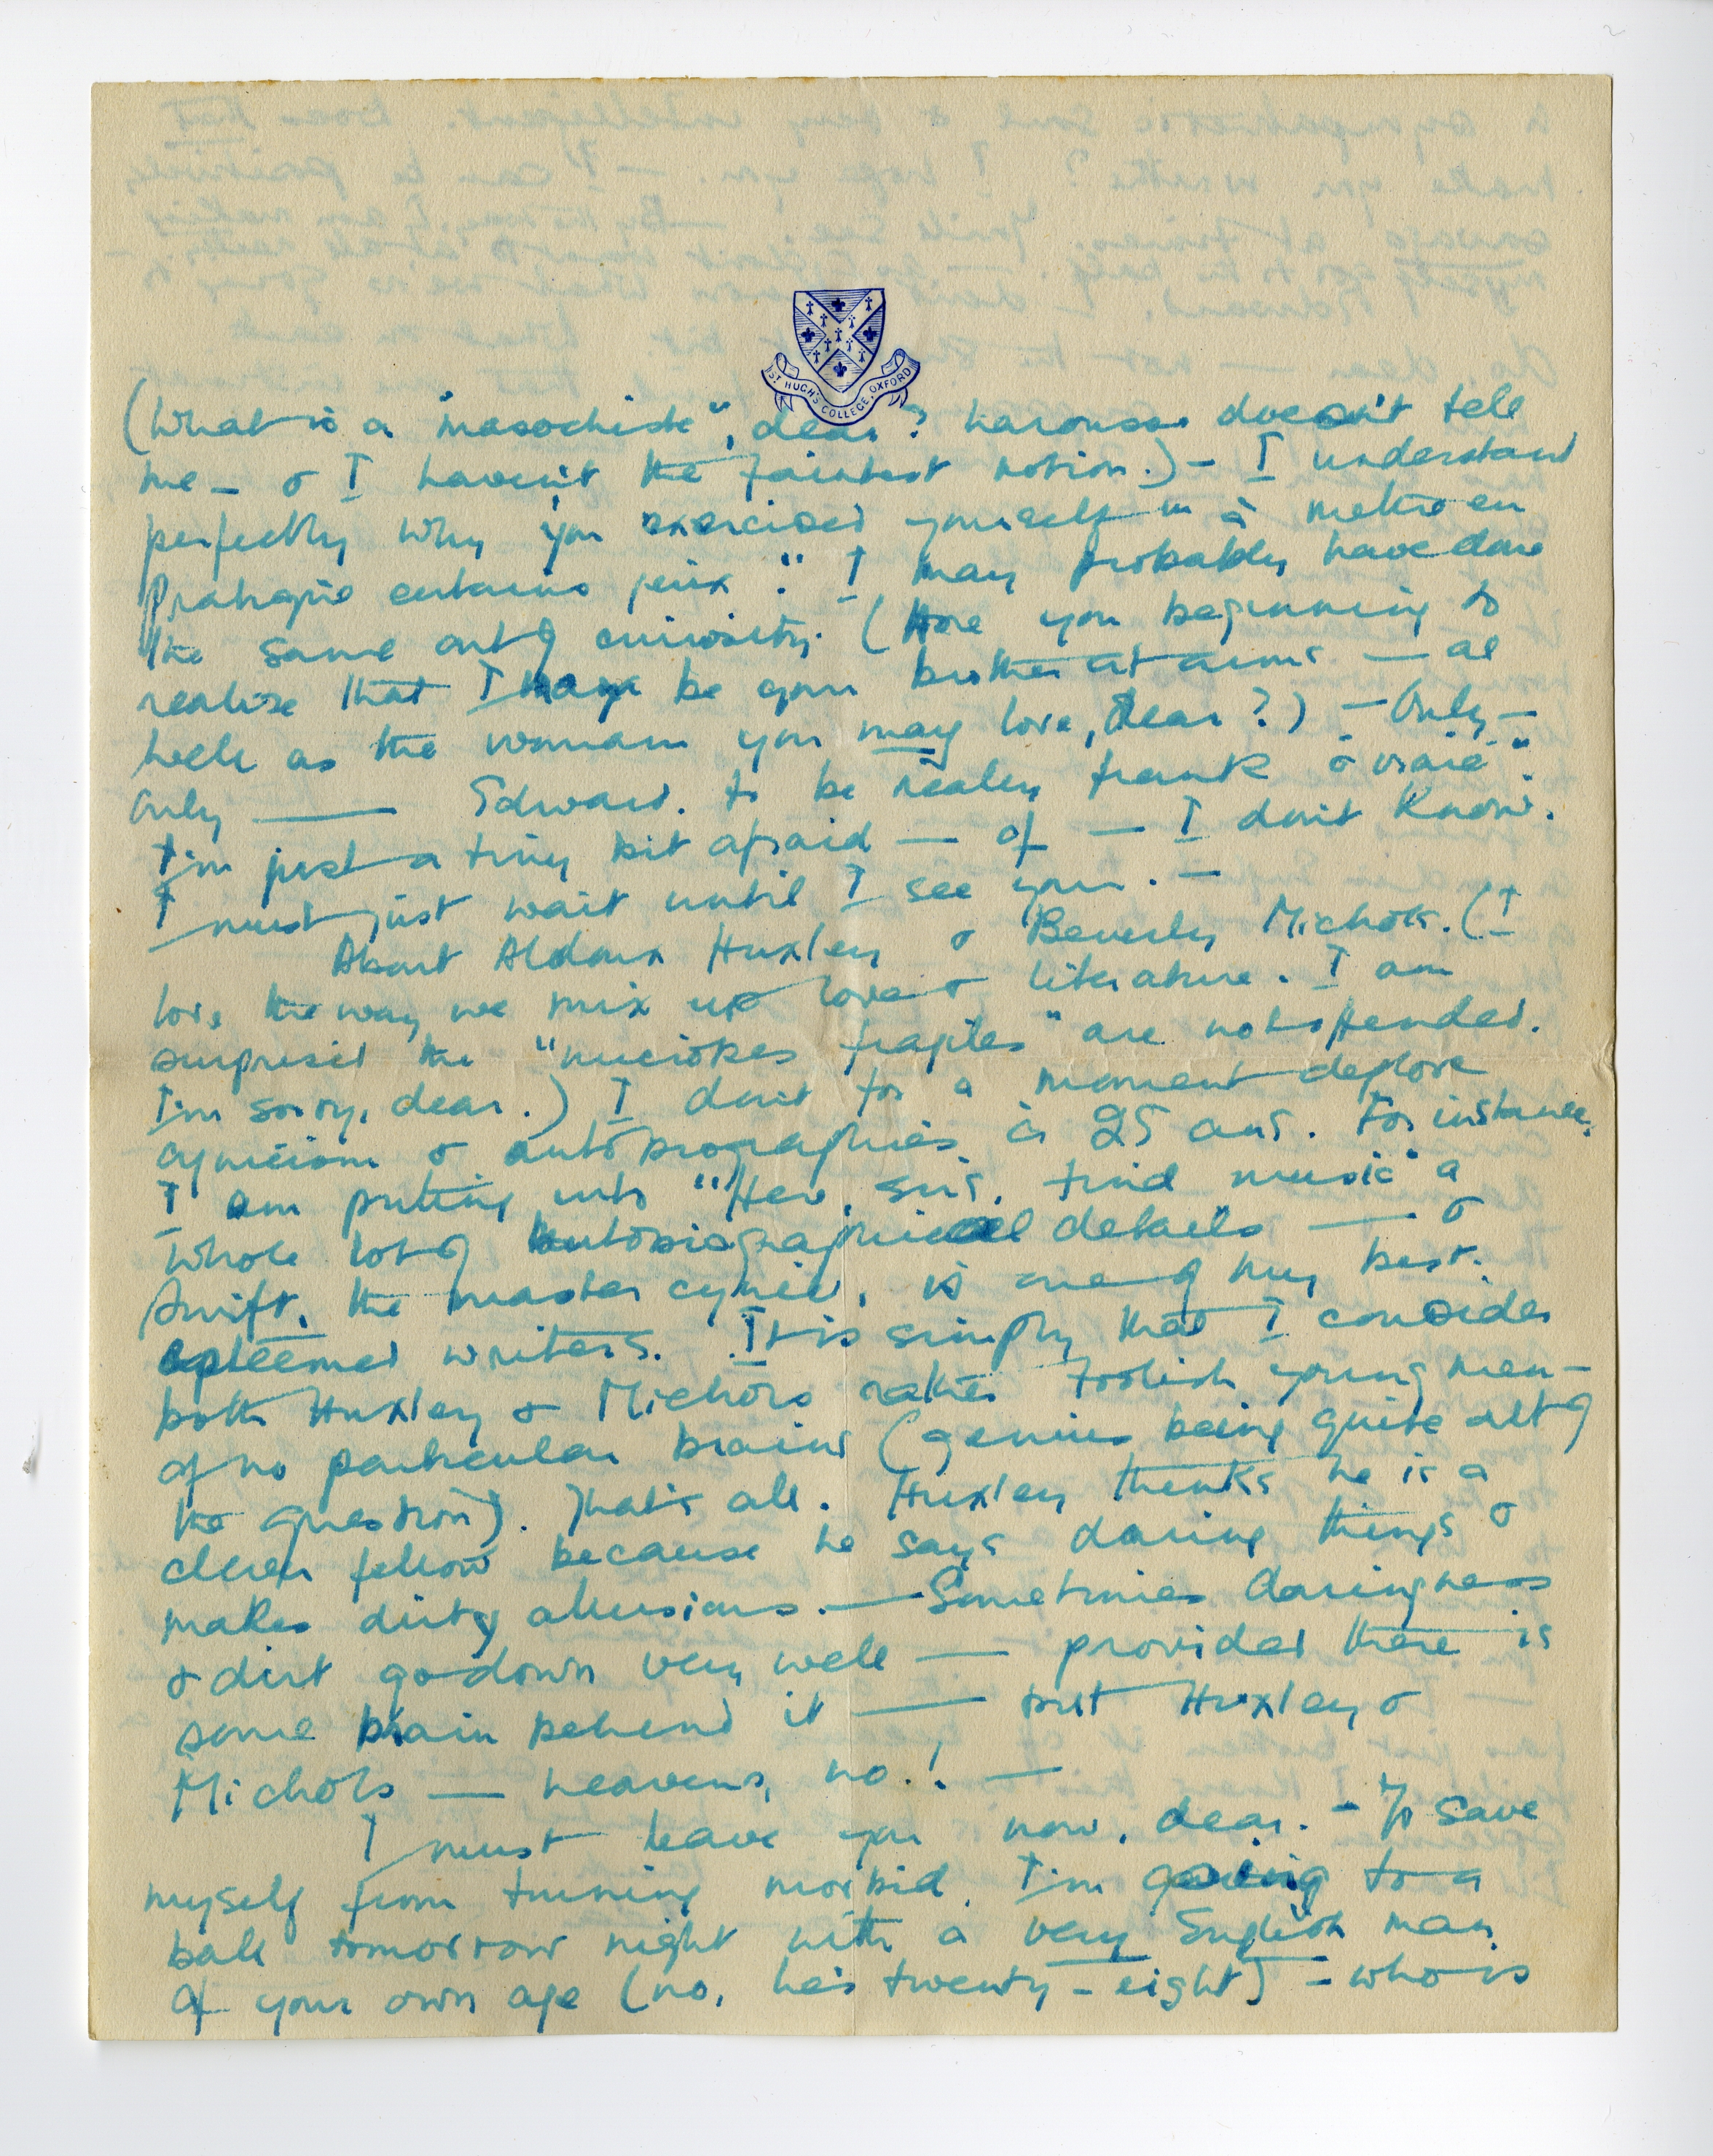 ST HUGH'S COLLEGE, OXFORD
(What is a "masochiste", dear? Larousse doesn't tell
me – & I haven't the faintest notion.) – I understand
perfectly why you exercised yourself "à mettre en
pratique certains jeux." I may probably have done
the same out of curiosity. (Are you beginning to
realise that I may be your brother at arms — as
well as the woman you may love, dear?) – Only –
only —— Edward. to be really frank & "vraie".
I'm just a tiny bit afraid — of — I don't know.
I must just wait until I see you. –
About Aldoux Huxley & Beverly Nichols. (I
love the way we mix up love & literature. I am
surprised the "fragiles" are not offended.
I'm sorry, dear.) I don't for a moment deplore
cynicism & autobiographies à 25 ans. For instance,
I am putting into "Here, sirs, find music" a
whole lot of autobiographical details —— &
Swift, the master cynic, is one of my best.
esteemed writers. It is simply that I consider
both Huxley & Nichols rather foolish young men –
of no particular brains (genius being quite out of
the question). That's all. Huxley thinks he is a
clever fellow because he says daring things &
makes dirty allusions. — Sometimes daringness
& dirt go down very well — provided there is
some brain behind it —— but Huxley &
Nichols — heavens, no! —
I must leave you now, dear. – To save
myself from turning morbid, I'm going to a
ball tomorrow night with a very English man
of your own age (no, he's twenty-eight) – who is